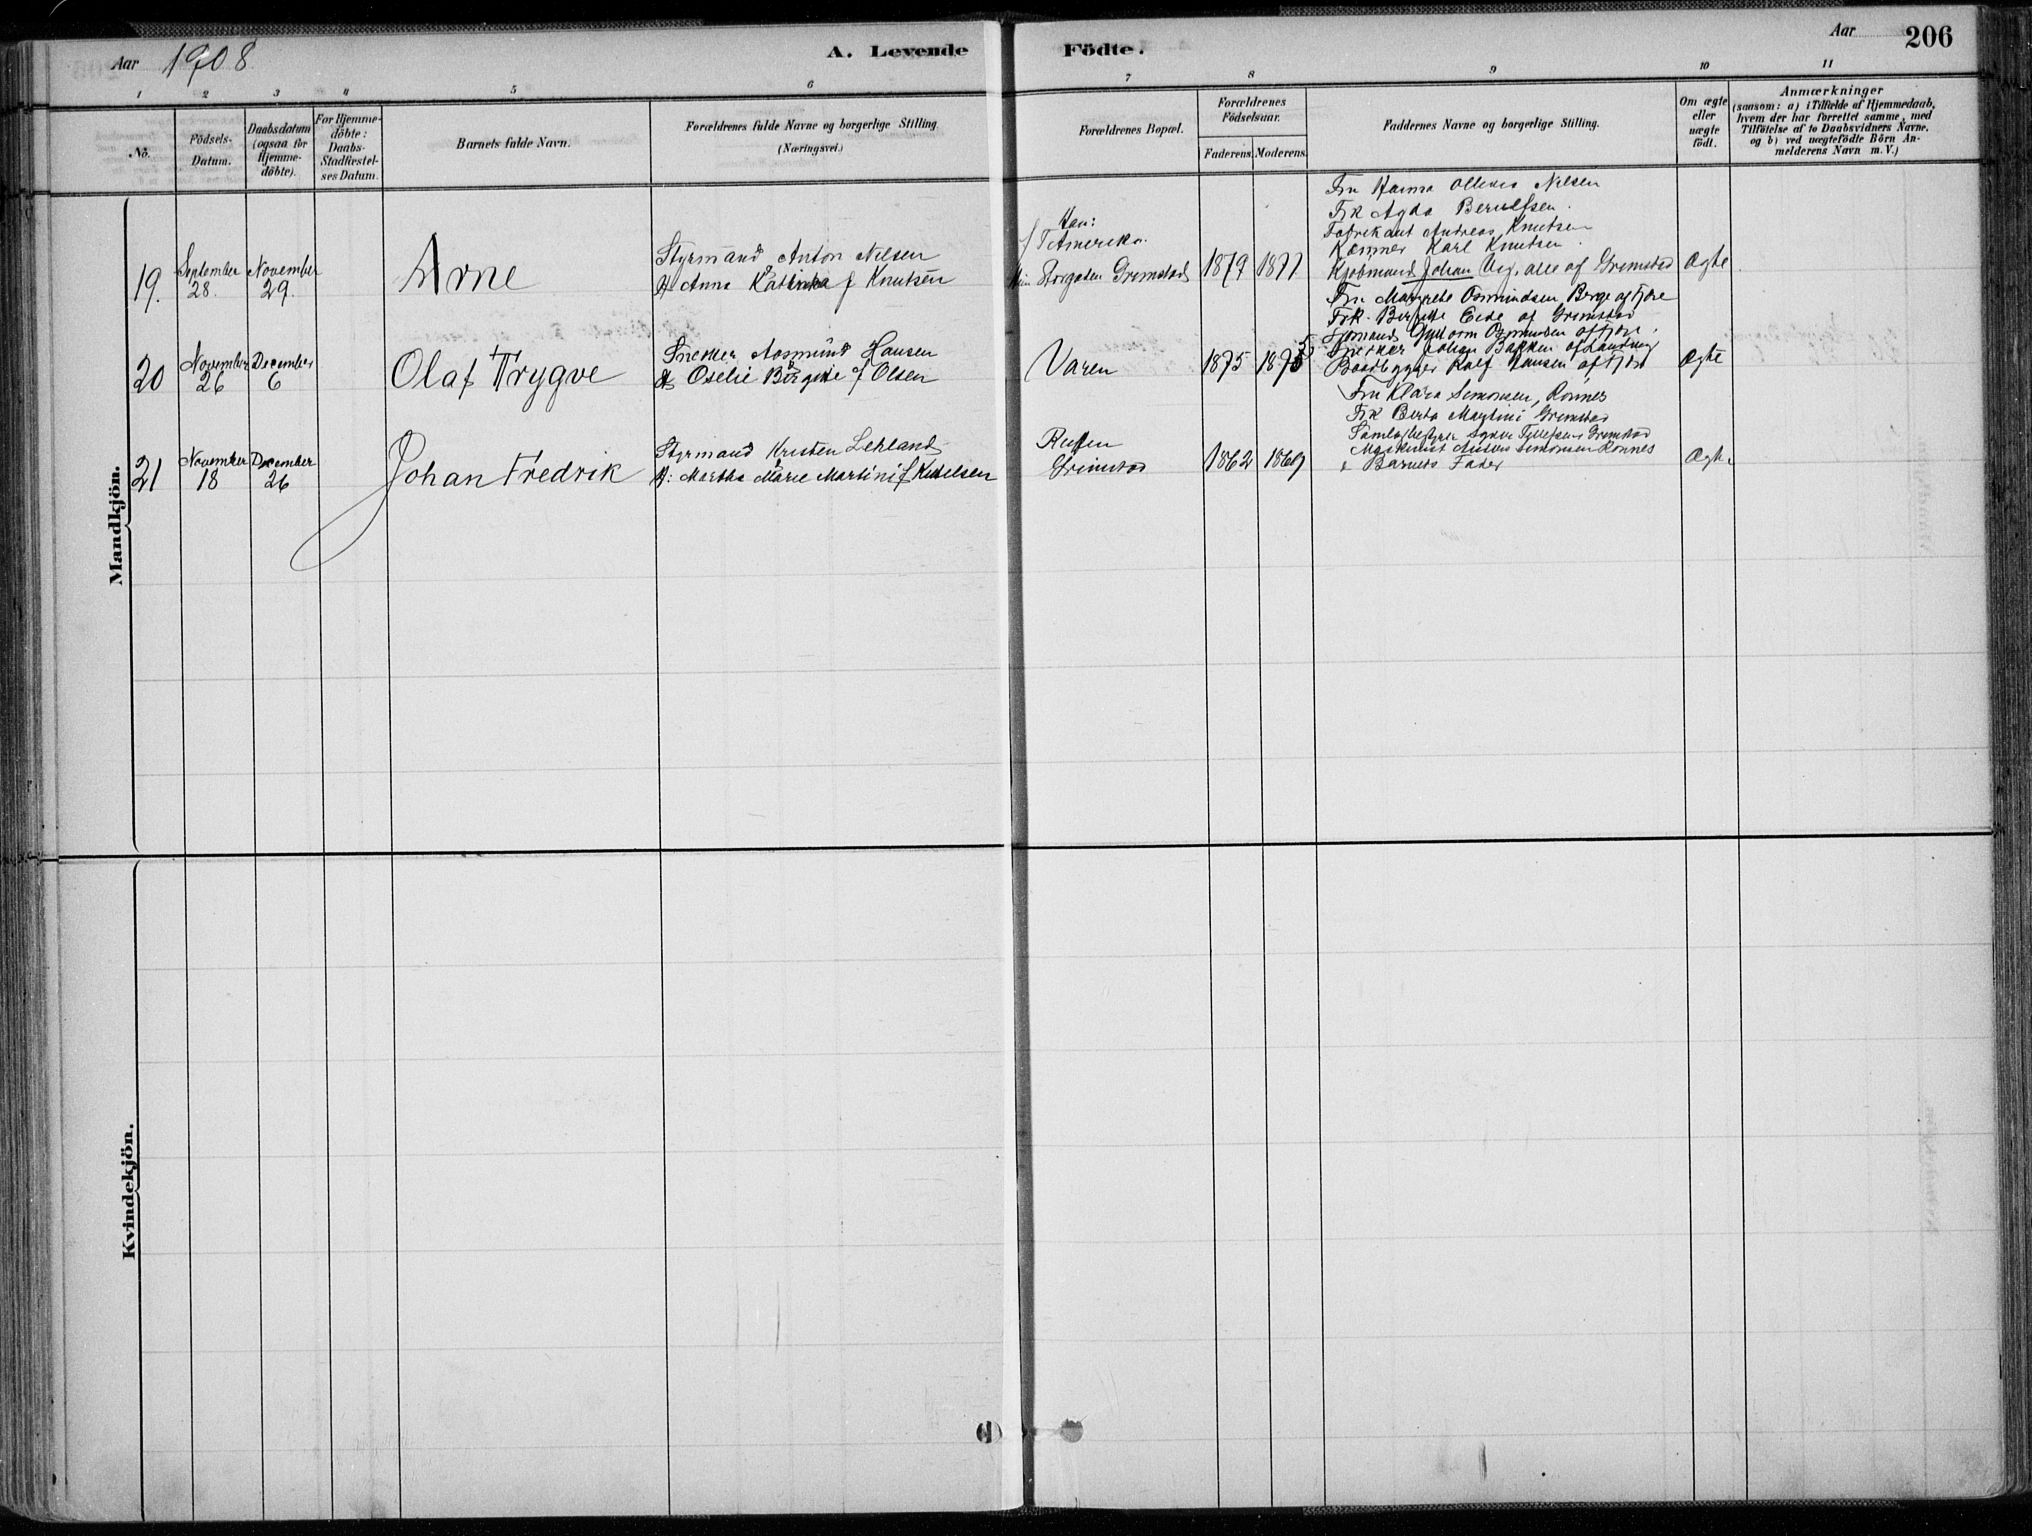 Aar 1908
A. Levende Födte.
Aar
206
1 2 3 4 5 6 7 8 9 10 11
No.
Födsels-Datum.
Daabsdatum (ogsaa for Hjemme-döbte).
For Hjemme-döbte: Daabs-Stadfæstel-ses Datum.
Barnets fulde Navn.
Forældrenes fulde Navne og borgerlige Stilling.
(Næringsvei.)
Forældrenes Bopæl.
Forældrenes Födselsaar.
Faderens. Moderens.
Faddernes Navne og borgerlige Stilling.
Om ægte eller uægte födt.
Anmærkninger
(saasom: a) i Tilfælde af Hjemmedaab,
hvem der har forrettet samme, med
Tilföielse af to Daabsvidners Navne.
og b) ved uægtefödte Börn An-
melderens Navn m. V.)
Mandkjön.
19. September 28. November 29. Arne
Styrmand Anton Nilsen
Anna Kathinka f Knutsen
Han:
Amerika
Grimstad
1879 1877
Fru Hanna Nilsen
Frk Agda Berulfsen.
Fabrikant Andreas Knutsen
Karl Knutsen
Kjøbmand Johan alle af Grimstad
Ægte
20 November 26 December 6 Olaf Trygve
Snekker Aasmund Hansen
Oselie f Olsen
Varen
1875 1875
Fru Margrethe Osmundsen Berge af Fjære
Frk. Eide af Grimstad
Osmundsen af Fjære.
Snekker Johan Bakken af Landvig
Baadbygger Hansen af Fjære
Ægte
21 November 18 December 26 Johan Fredrik
Styrmand Kristen
Martha Marie Martini f
Grimstad
1862 1869
Fru Klara Simonsen, Rønnes
Frk Berta Martini Grimstad
Grimstad
Maskinist Simonsen Rønnes
Barnets Fader
Ægte
Kvindekjön.